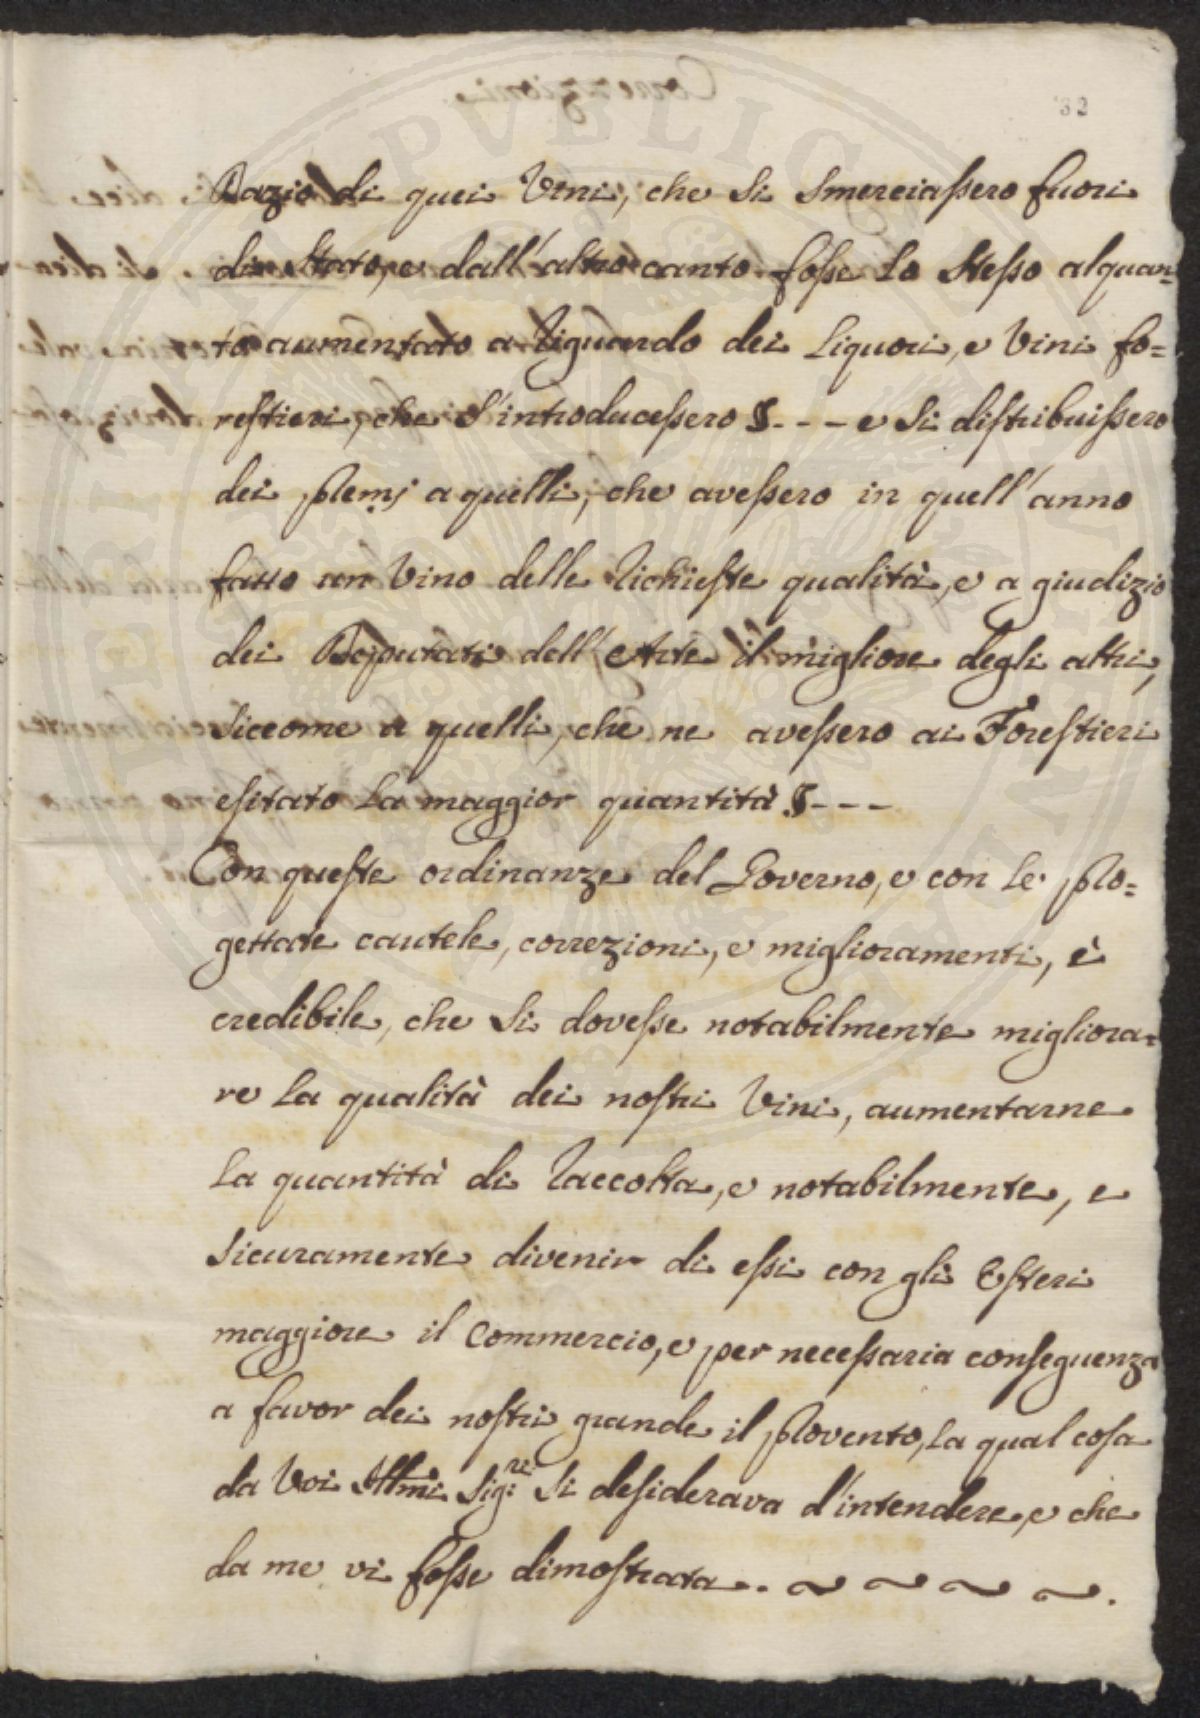 32
Dazio di quei Vini, che si smerciassero fuori
di Stato, e dall'altro canto fosse lo stesso alquan-
to aumentato a riguardo dei Liquori, e Vini fo=
restieri, che s'introducessero §. - - - e si distribuissero
dei premj a quelli, che avessero in quell'anno
fatto un Vino delle richieste qualità, e a giudizio
dei Deputati dell'Arte il migliore degli altri,
siccome a quelli, che ne avessero ai Forestieri
esitato la maggior quantità §. - - -
Con queste ordinanze del Governo, e con le pro=
gettate cautele, correzioni, e miglioramenti, è
credibile, che si dovesse notabilmente migliora=
re la qualità dei nostri Vini, aumentarne
la quantità di raccolta, e notabilmente, e
sicuramente divenir di essi con gli Esteri
maggiore il Commercio, e per necessaria conseguenza
a favor dei nostri grande il provento, la qual cosa
da Voi Illmi Sig:ri si desiderava d'intendere, e che
da me vi fosse dimostrata. ~ ~ ~ ~.